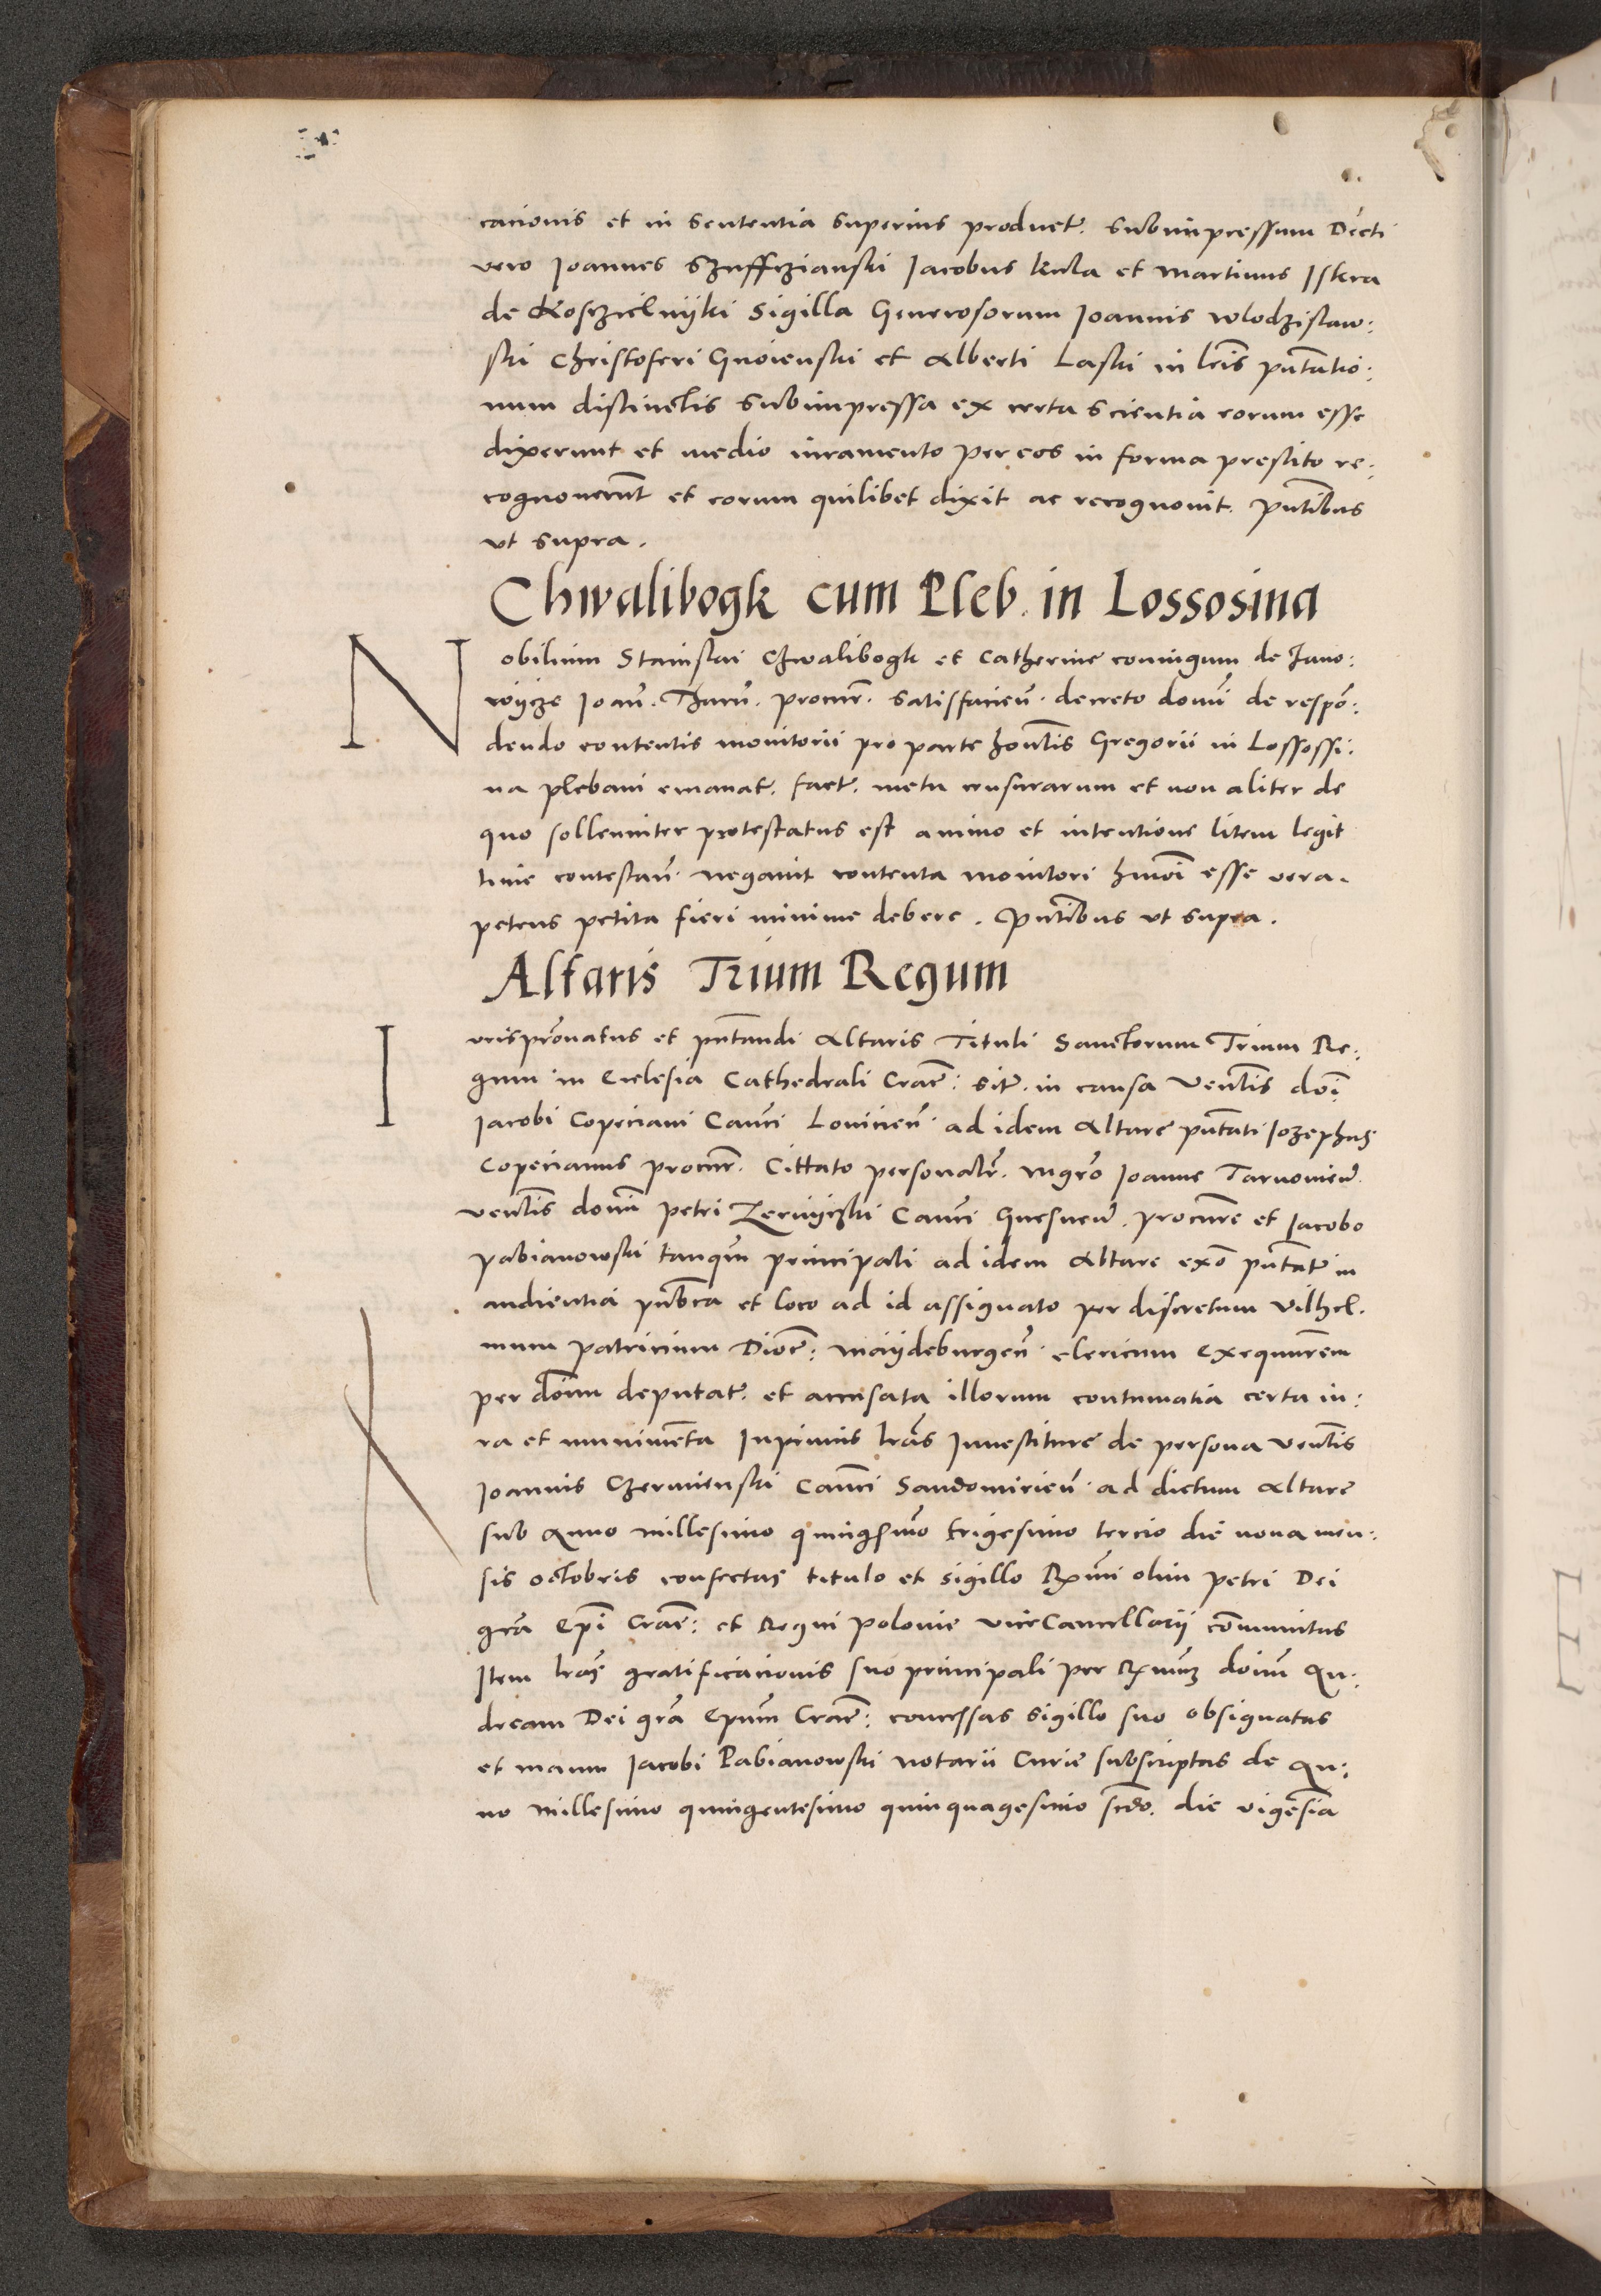 cacionis et in sententia superius productꝰ. subimpressum Dicti
vero Joannes Szuffczianski Jacobus Kula et Martinus Iskra
de Kosczielnijki Sigilla Generosorum Joannis wlodzislaw:
ski Christoferi Gnoienski et Alberti Laski in lr̃is pñtatio:
num distinctis Subimpressa ex certa scientia eorum esse
dixerunt et medio iuramento per eos in forma prestito re:
cognouerũt et eorum quilibet dixit ac recognouit. Pñtibus
vt supra.
Chwalibogk cum Pleb. in Lossosina
Nobilium Stanislai Chwalibogk et Catherine coniugum de Jano:
wijcze Joañ. Tharñ. procurꝰ. satisfacieñ. decreto domĩ de respõ:
dendo contentis monitorii pro parte hoñtis Gregorii in Lossossi:
na plebani emanatꝰ. factꝰ. metu censurarum et non aliter de
quo sollenniter protestatus est animo et intentione litem legit
time contestañ. negauit contenta monitori hmõi esse vera.
petens petita fieri minime debere. Pñtibus vt supra.
Altaris Trium Regum
Iurisprõnatus et pñtandi Altaris Tituli Sanctorum Trium Re:
gum in Ecclesia Cathedrali Crac̃: sitꝰ. in causa Veñtis doĩ
Jacobi Copeciani Cañci Louicieñ. ad idem Altare pñtati Jozephus
Copecianus procurꝰ. Cittato personalr̃. mgr̃o Joanne Tarnouieñ.
veñtis domĩ Petri Zernijczki Cañci Gnesneñ. procur̃e et Jacobo
Pabianowski tanq̃m principali ad idem Altare ex õ pñtatꝰ in
audientia publica et loco ad id assignato per discretum Vilhel.
mum patricium Dioc̃: Maijdeburgeñ. clericum Exequutr̃em
per dõim deputatꝰ. et accusata illorum contumatia certa iu:
ra et munimẽta Inprimis lr̃as Inuestiture de persona veñtis
Joannis Czermienski Cañci Sandomirieñ. ad dictum Altare
sub Anno millesimo quingẽmo trigesimo tercio die nona men:
sis octobris confectas titulo et sigillo Rx̃mi olim petri Dei
gr̃a Ep̃i Crac̃: et Regni Polonie viceCancellarij com̃unitas
Item lr̃as gratificacionis suo principali per Rx̃mum doĩm An:
dream Dei gr̃a Ep̃um Crac̃: concessas sigillo suo obsignatas
et manu Jacobi Pabianowski notarii Curie subscriptas de An:
no Millesimo quingentesimo quinquagesimo sc̃do. die vigẽsia